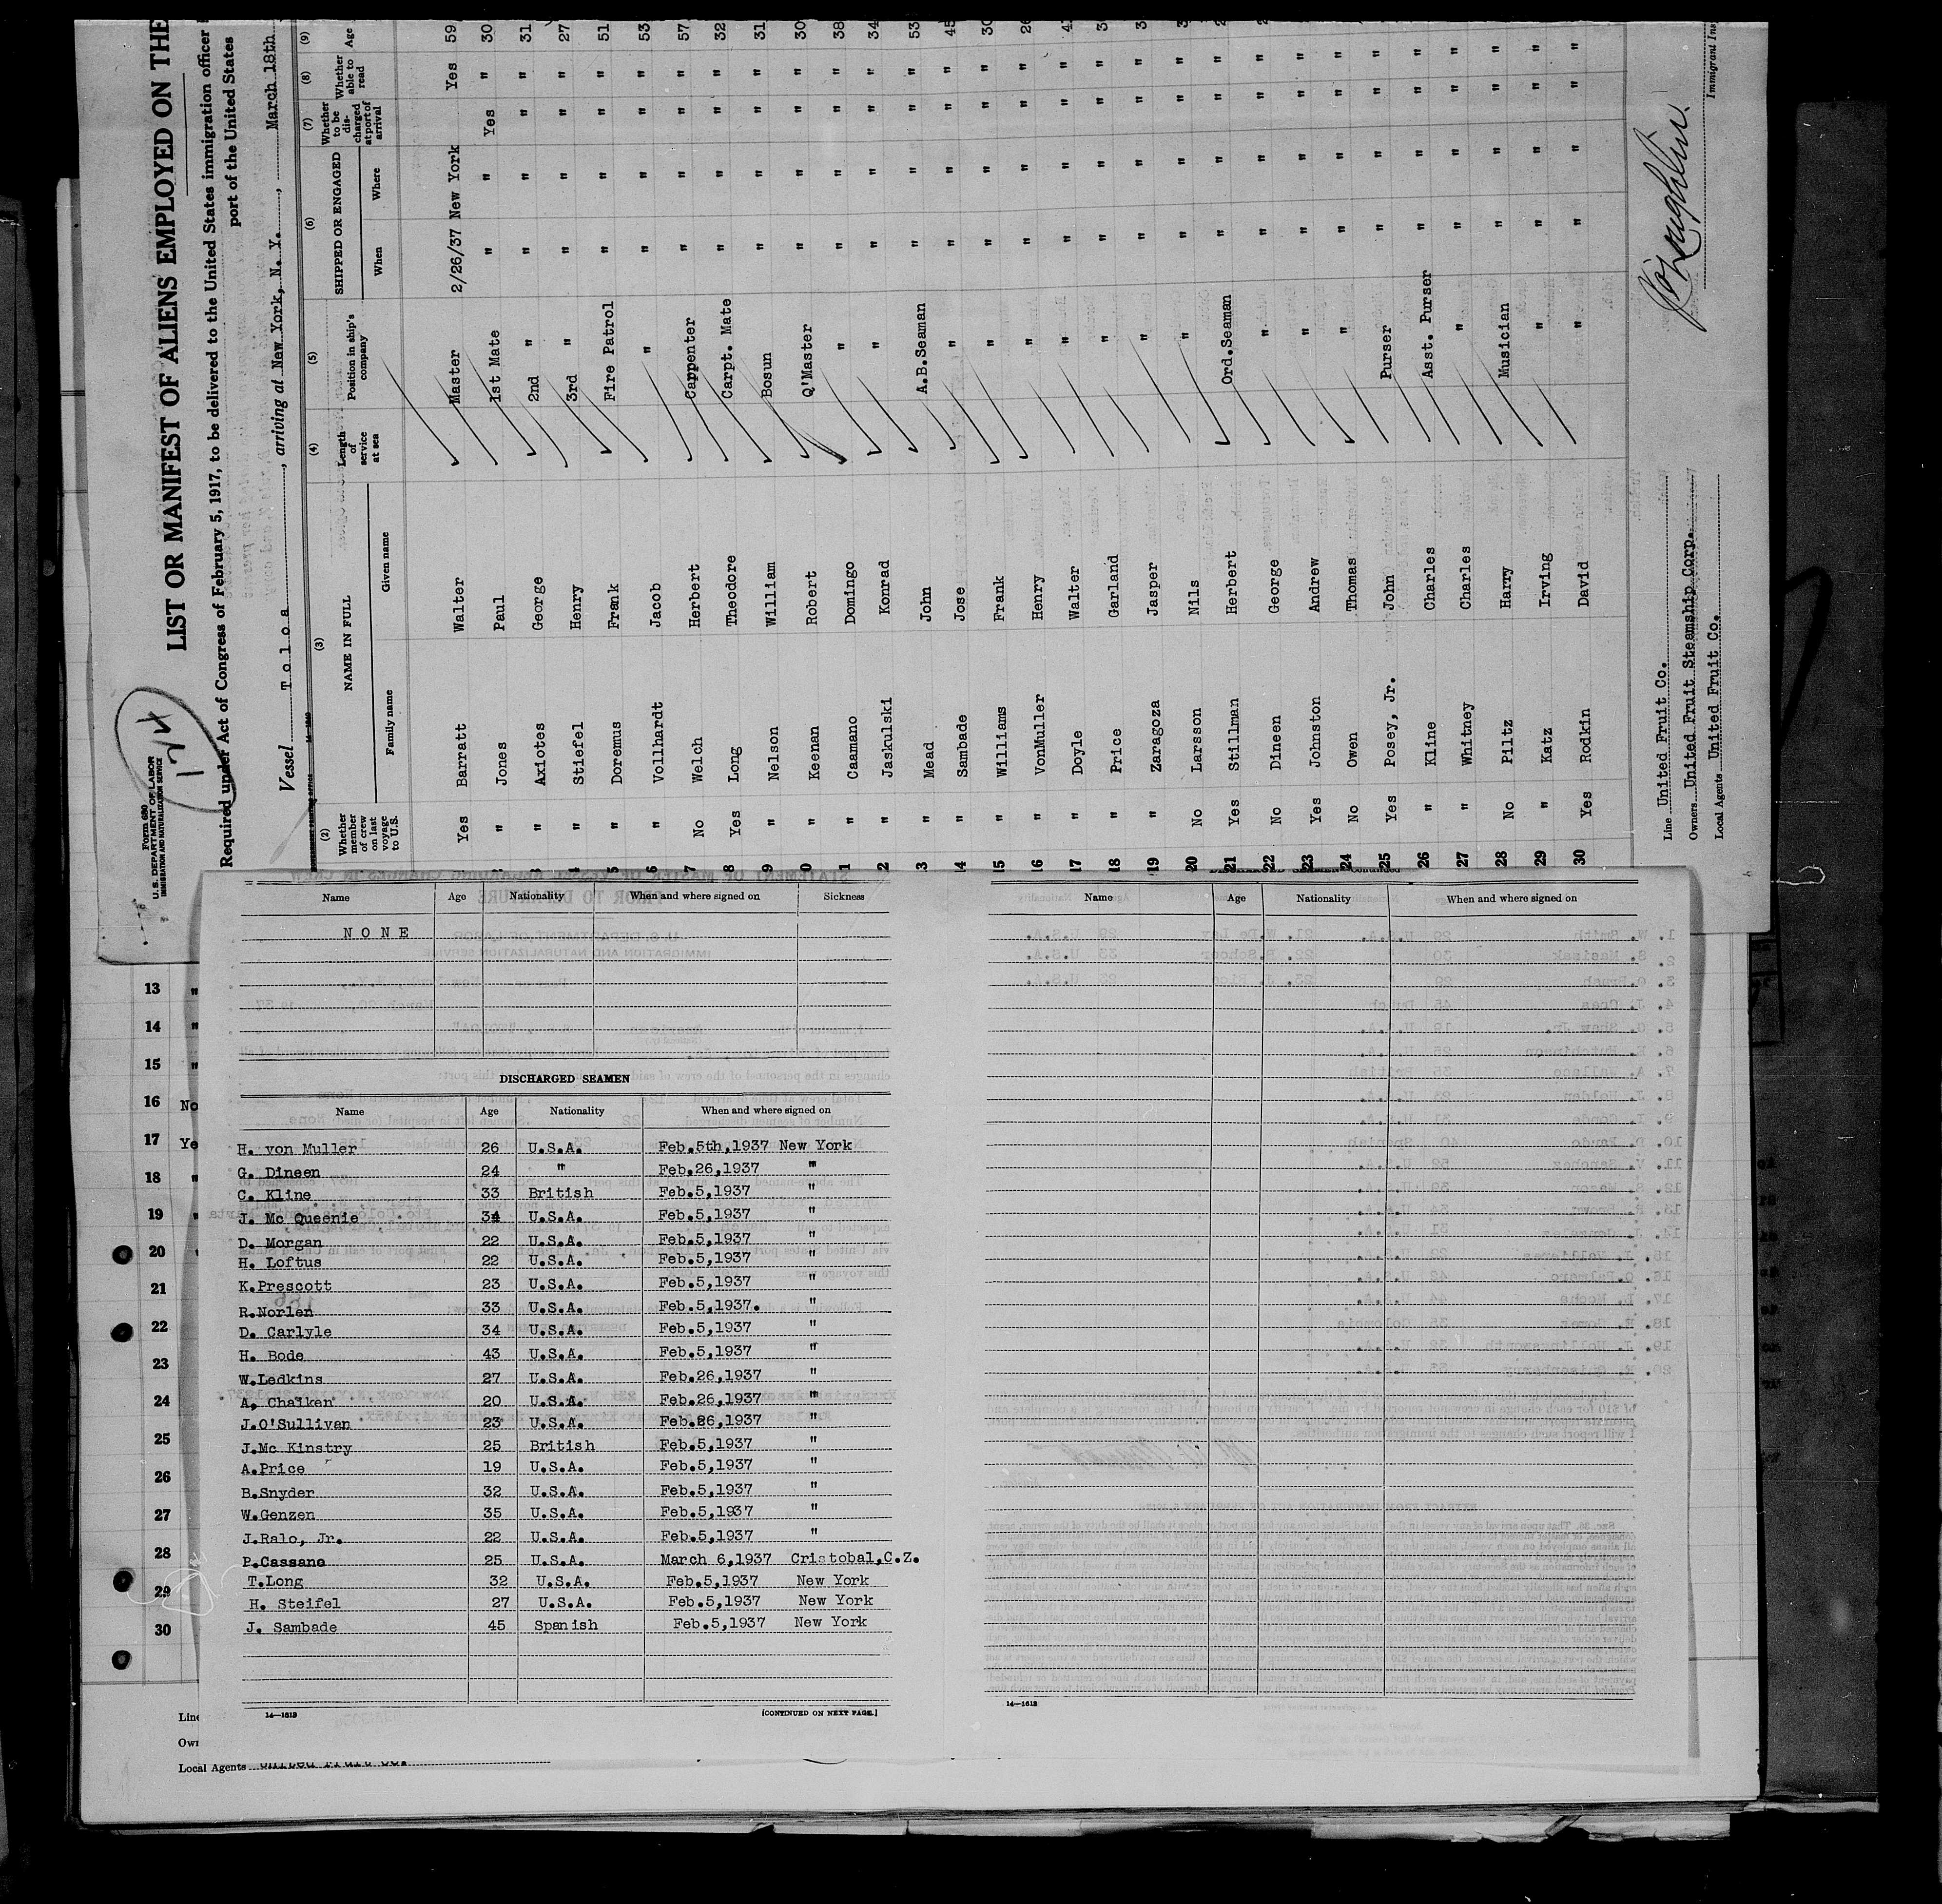 Form 680
U. S. DEPARTMENT OF LABOR
IMMIGRATION AND NATURALIZATION SERVICE
124
LIST OR MANIFEST OF ALIENS EMPLOYED ON THE
Required under Act of Congress of February 5, 1917, to be delivered to the United States immigration officer
port of the United States
Vessel T o l o a , arriving at New York, N. Y. , March 18th
(2) (3) (4) (5) (6) (7) (8) (9)
Whether member of crew on last voyage to U.S. NAME IN FULL Length of service at sea Position in ship's company SHIPPED OR ENGAGED Whether to be discharged at port of arrival Whether able to read Age
Family name Given name When Where
Yes Barratt Walter Master 2/26/37 New York Yes 59
" Jones Paul 1st Mate " " Yes " 30
" Axiotes George 2nd " " " " " 31
" Stiefel Henry 3rd " " " " " 27
" Doremus Frank Fire Patrol " " " " 51
" Vollhardt Jacob " " " " " 53
No Welch Herbert Carpenter " " " " 57
Yes Long Theodore Carpt. Mate " " " " 32
" Nelson William Bosun " " " " 31
" Keenan Robert Q'Master " " " " 30
" Caamano Domingo " " " " " 38
" Jaskulski Konrad " " " " " 34
" Mead John A.B.Seaman " " " " 53
14 " Sambade Jose " " " " " 45
15 " Williams Frank " " " " " 30
16 " VonMuller Henry " " " " " 26
17 " Doyle Walter " " " " "
18 " Price Garland " " " " "
19 " Zaragoza Jasper " " " " "
20 No Larsson Nils " " " " "
21 Yes Stillman Herbert Ord.Seaman " " " "
22 No Dineen George " " " " "
23 Yes Johnston Andrew " " " " "
24 No Owen Thomas " " " " "
25 Yes Posey, Jr. John Purser " " " "
26 " Kline Charles Asst. Purser " " " "
27 " Whitney Charles " " " " "
28 No Piltz Harry Musician " " " "
29 " Katz Irving " " " " "
30 Yes Rodkin David " " " " "
Line United Fruit Co.
Owners United Fruit Steamship Corp.
Local Agents United Fruit Co.
Immigrant Ins
Name Age Nationality When and where signed on Sickness
N O N E
DISCHARGED SEAMEN
Name Age Nationality When and where signed on
H. von Muller 26 U.S.A. Feb.5th,1937 New York
G. Dineen 24 " Feb.26,1937 "
C. Kline 33 British Feb.5,1937 "
J. Mc Queenie 34 U.S.A. Feb.5,1937 "
D. Morgan 22 U.S.A. Feb.5,1937 "
H. Loftus 22 U.S.A. Feb.5,1937 "
K.Prescott 23 U.S.A. Feb.5,1937 "
R.Norlen 33 U.S.A. Feb.5,1937. "
D. Carlyle 34 U.S.A. Feb.5,1937 "
H. Bode 43 U.S.A. Feb.5,1937 "
W.Ledkins 27 U.S.A. Feb.26,1937 "
A. Chaiken 20 U.S.A. Feb.26,1937 "
J.O'Sullivan 23 U.S.A. Feb.26,1937 "
J.Mc Kinstry 25 British Feb.5,1937 "
A.Price 19 U.S.A. Feb.5,1937 "
B.Snyder 32 U.S.A. Feb.5,1937 "
W.Genzen 35 U.S.A. Feb.5,1937 "
J.Ralo, Jr. 22 U.S.A. Feb.5,1937 "
P.Cassano 25 U.S.A. March 6,1937 Cristobal,C.Z.
T.Long 32 U.S.A. Feb.5,1937 New York
H. Steifel 27 U.S.A. Feb.5,1937 New York
J. Sambade 45 Spanish Feb.5,1937 New York
14—1613
[CONTINUED ON NEXT PAGE.]
Name Age Nationality When and where signed on
14—1613
13 "
14 "
15 "
16 No
17 Ye
18 "
19 "
20
21
22
23
24
25
26
27
28
29
30
Line
Own
Local Agents United Fruit Co.